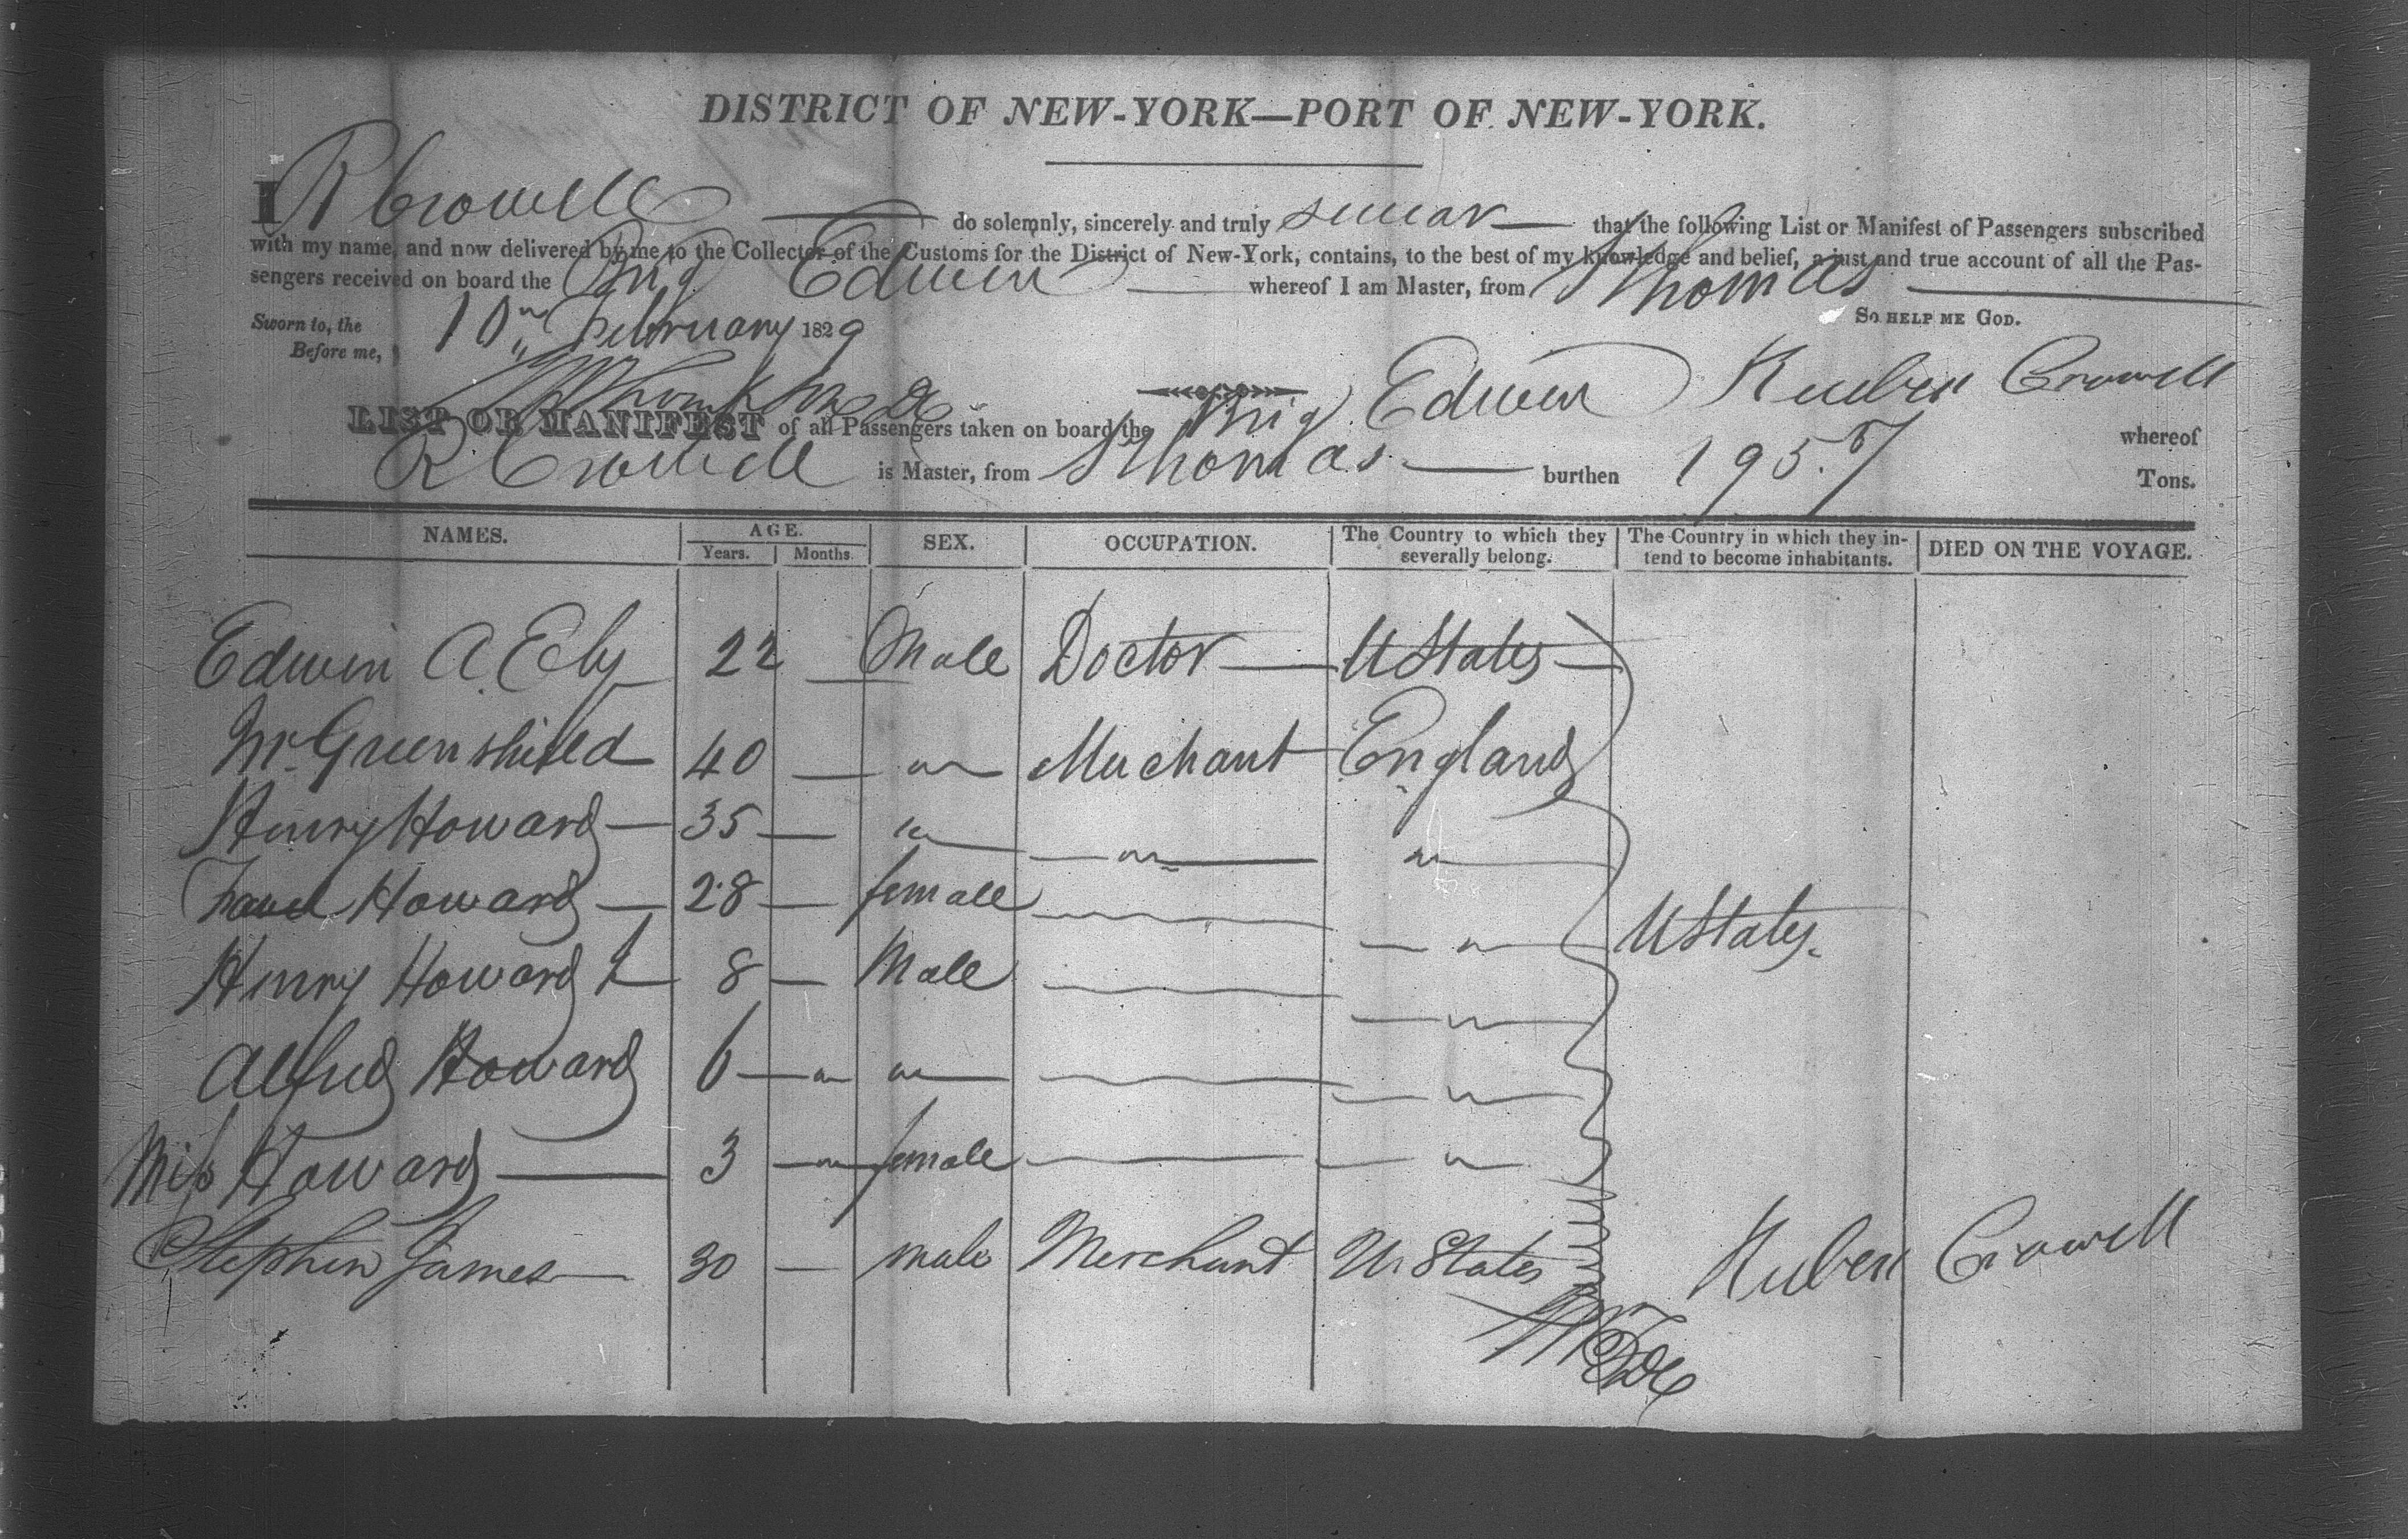 DISTRICT OF NEW-YORK—PORT OF NEW-YORK.
I R Crowell do solemnly, sincerely and truly swear that the following List or Manifest of Passengers subscribed
with my name, and now delivered by me to the Collector of the Customs for the District of New-York, contains, to the best of my knowledge and belief, a just and true account of all the Pas-
sengers received on board the Brig Edwin whereof I am Master, from St Thomas
Sworn to, the 10th February 1829 SO HELP ME GOD.
Before me,
Reuben Crowell
LIST OR MANIFEST of all Passengers taken on board the Brig Edwin whereof
R Crowell is Master, from St Thomas burthen 195 Tons.
NAMES. AGE. SEX. OCCUPATION. The Country to which they severally belong. The Country in which they in-tend to become inhabitants. DIED ON THE VOYAGE.
Years. Months.
Edwin A. Ely 22 — Male Doctor — U States —
Mr Greenshield 40 — " Merchant England
Henry Howard — 35 — " — " — "
Howard — 28 — female — " —
U States.
Henry Howard J 8 — Male — " —
Alfred Howard 6 — " — " — — " —
Miss Howard — 3 — " — female — — "
Stephen James — 30 — male Merchant U States
Reuben Crowell